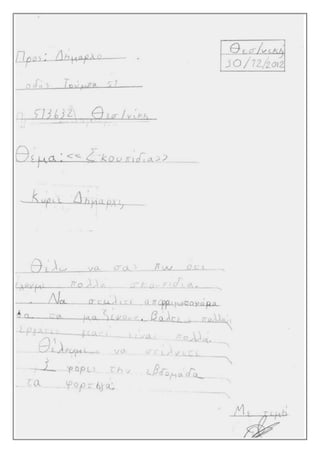 Θεσ/νίκη
30/12/2012
Προς: Δήμαρχο
οδός Τούμπα 51
513632 Θεσ/νίκης
Θέμα: <<Σκουπίδια>>
Κύριε Δήμαρχε,
Θέλω να σας πω ότι
έχουμε πολλά σκουπίδια.
Να στείλετε απορριματοφόρα
να τα μαζεύουν. Βάλτε πολλή
εργάτες γιατί είναι πολλά.
Θέλουμε να στέλνετε
φορές την εβδομάδα
τα φορτηγά.
Με τιμή